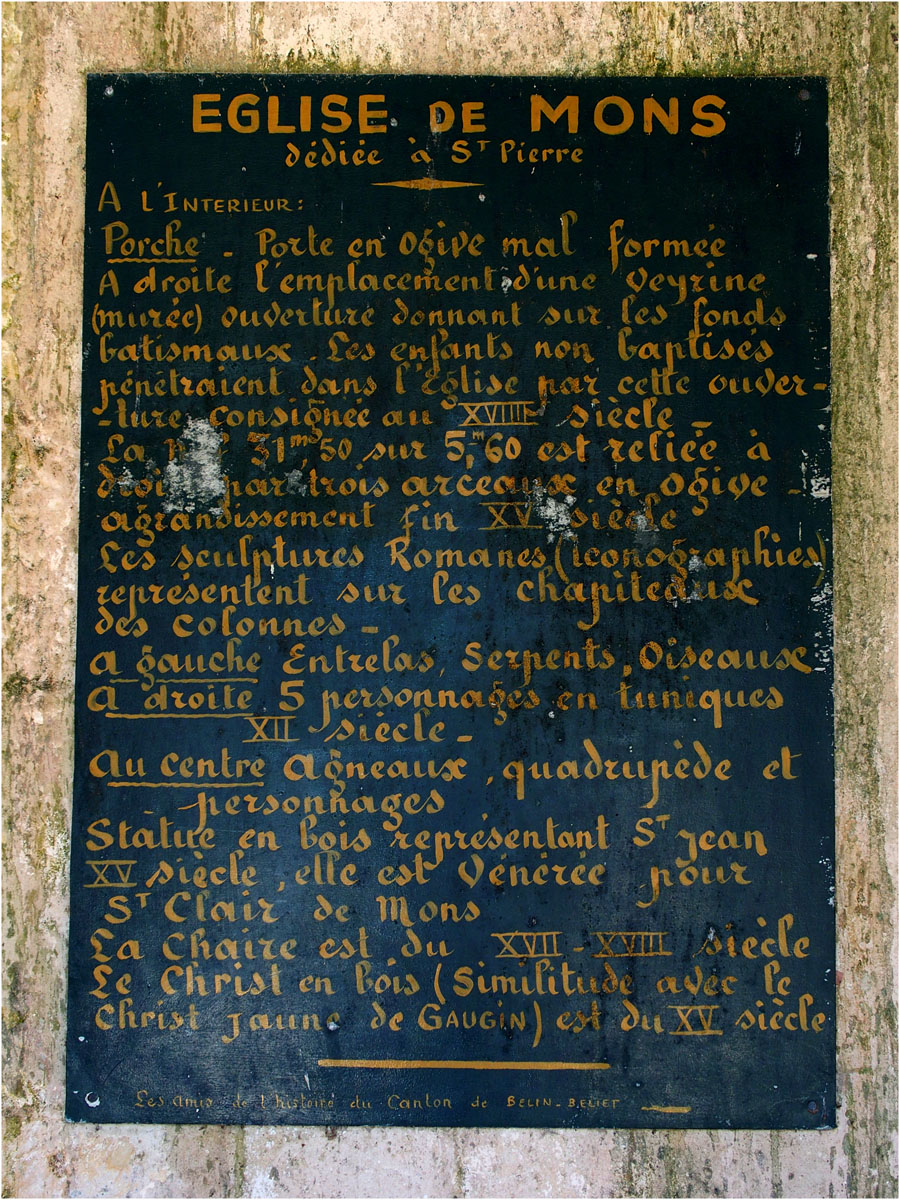 EGLISE DE MONS
dédiée à ST Pierre
A L'INTERIEUR:
Porche - Porte en ogive mal formée
A droite l'emplacement d'une Veyrine
(murée) ouverture donnant sur les fonds
batismaux. Les enfants non baptisés
pénétraient dans l'Eglise par cette ouver-
-ture consignée au XVIII siècle -
La 31m,50 sur 5,m60 est reliée à
par trois arceaux en ogive -
agrandissement fin XV siècle
Les sculptures Romanes (iconographies)
représentent sur les chapiteaux
des colonnes -
a gauche Entrelas, Serpents, Oiseaux
A droite 5 personnages en tuniques
XII siècle -
Au centre Agneaux, quadrupède et
personnages
Statue en bois représentant ST Jean
XV siècle, elle est Vénérée pour
ST Clair de Mons
La Chaire est du XVII - XVIII siècle
Le Christ en bois (Similitude avec le
Christ jaune de GAUGIN) est du XV siècle
Les amis de l'histoire du Canton de BELIN-BELIET